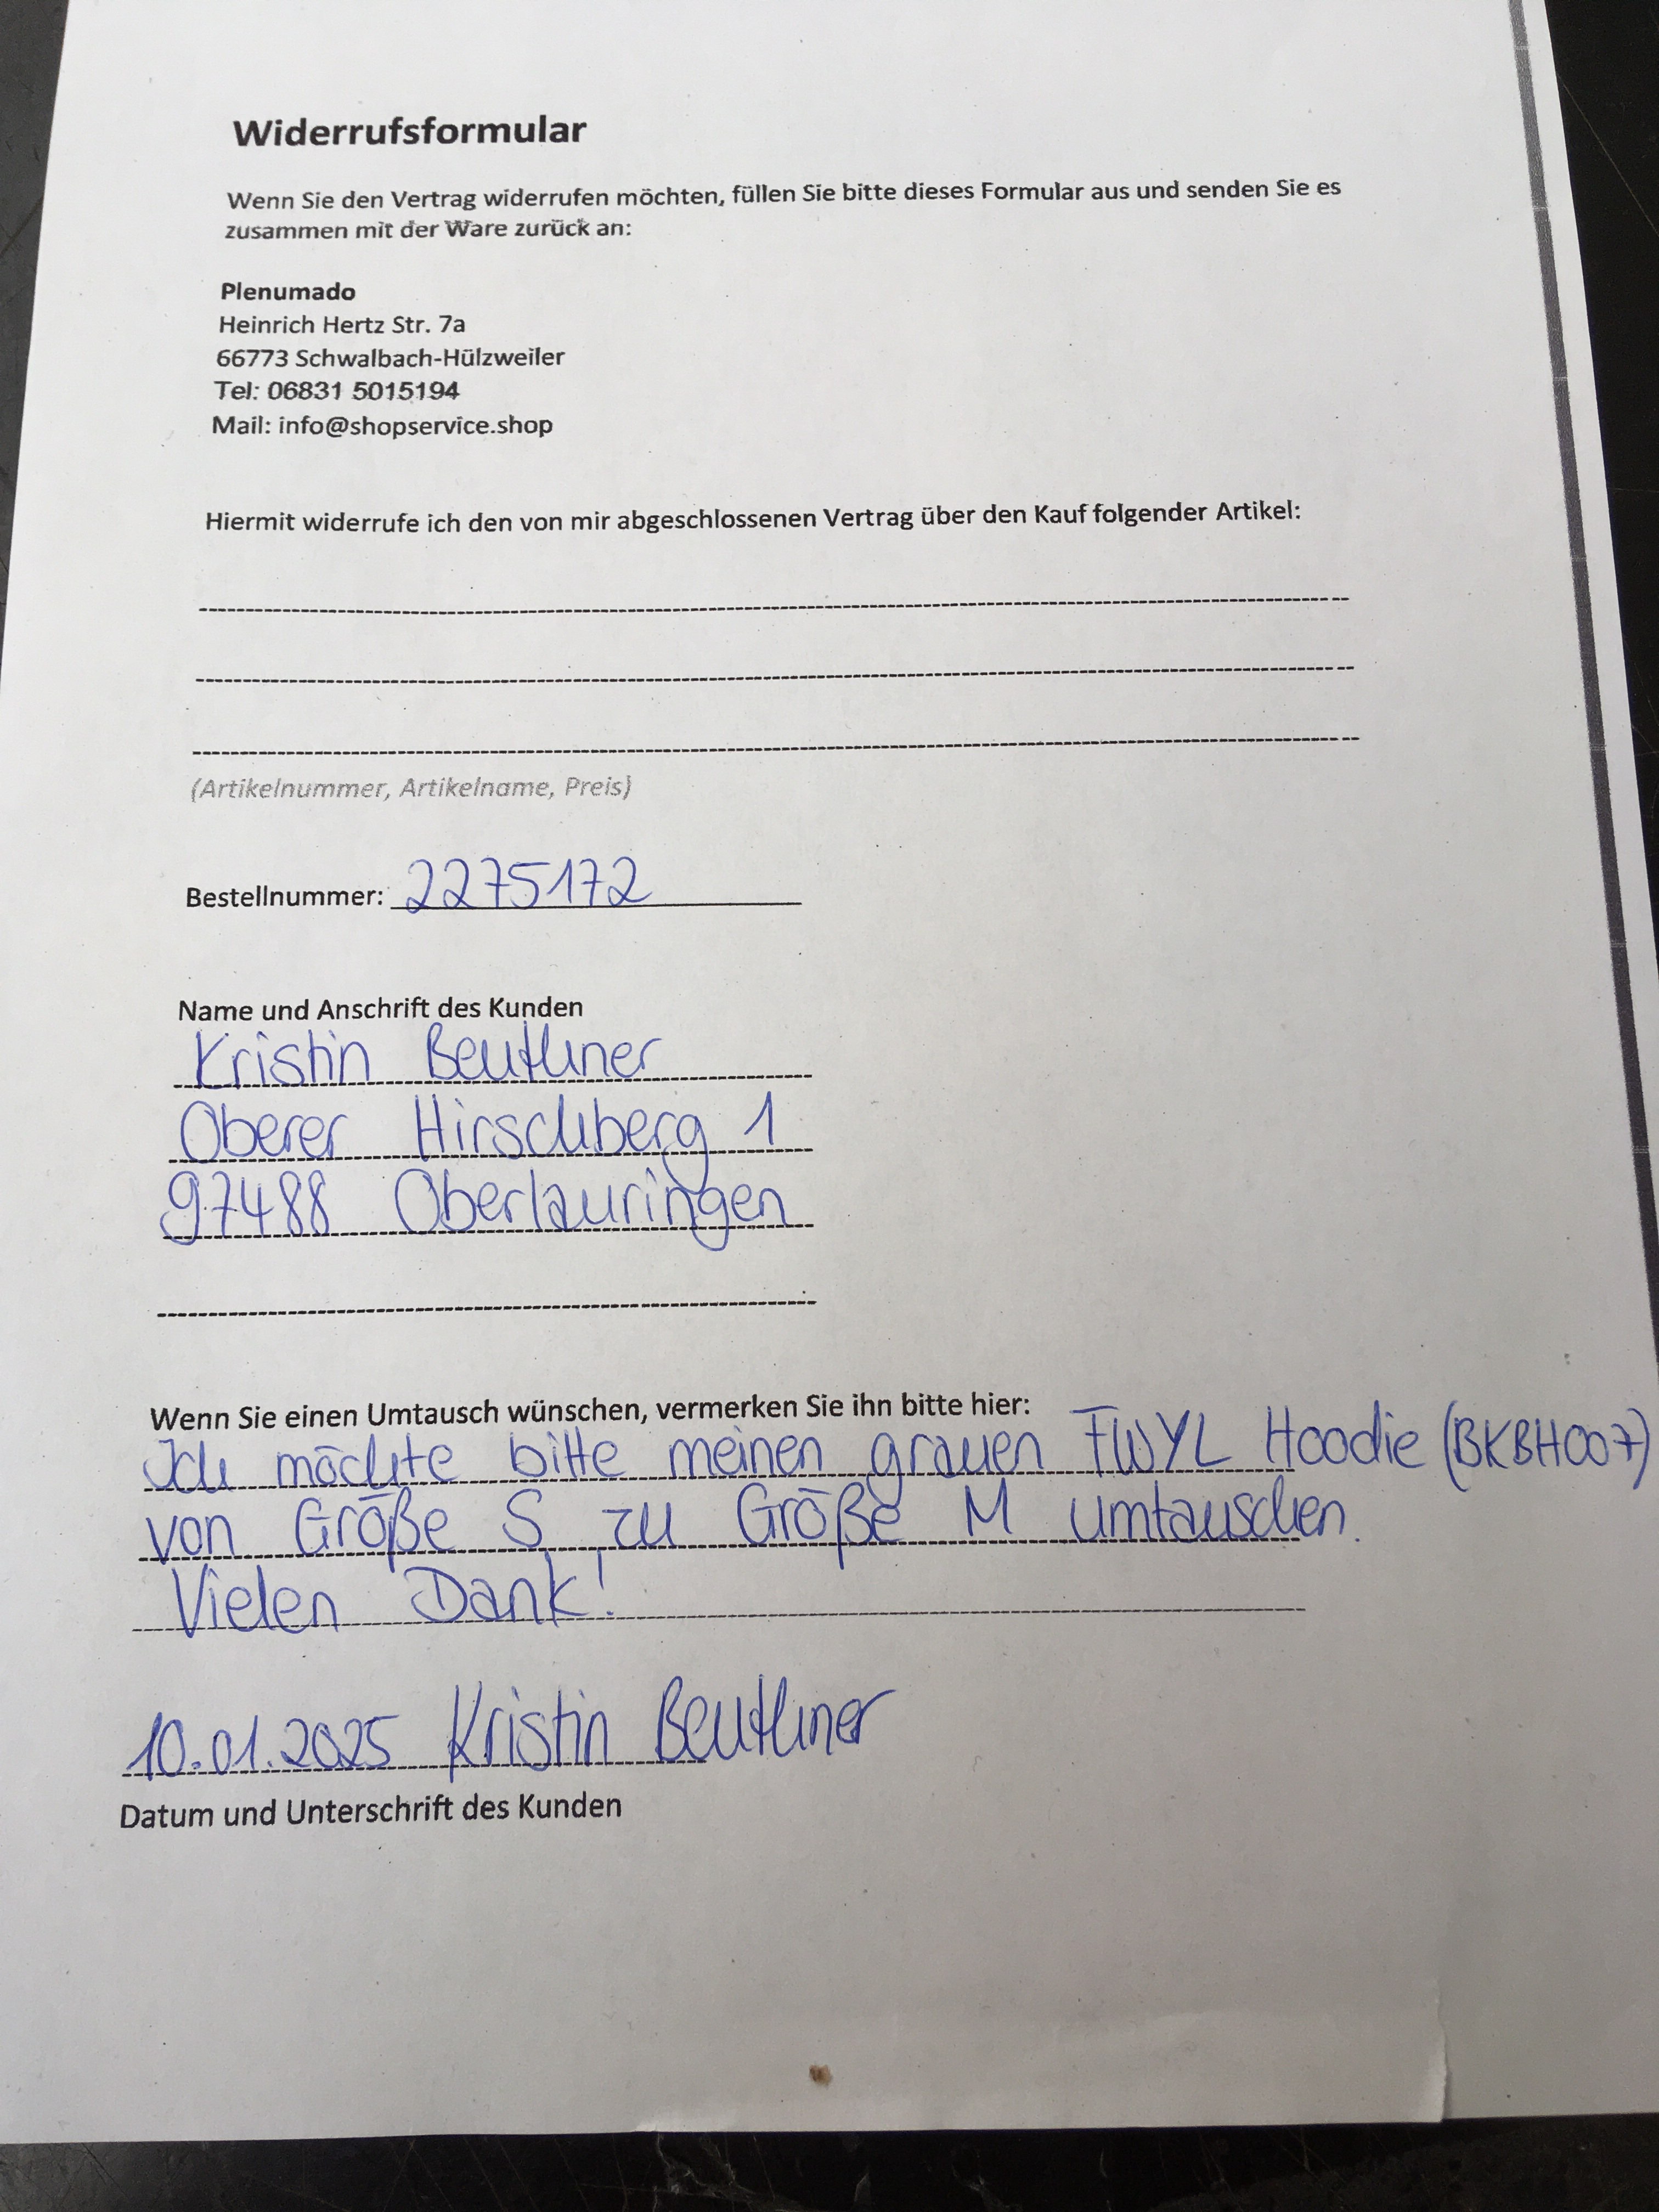 Widerrufsformular
Wenn Sie den Vertrag widerrufen möchten, füllen Sie bitte dieses Formular aus und senden Sie es
zusammen mit der Ware zurück an:
Plenumado
Heinrich Hertz Str. 7a
66773 Schwalbach-Hülzweiler
Tel: 06831 5015194
Mail: info@shopservice.shop
Hiermit widerrufe ich den von mir abgeschlossenen Vertrag über den Kauf folgender Artikel:
(Artikelnummer, Artikelname, Preis)
Bestellnummer: 2275172
Name und Anschrift des Kunden
Kristin Beuthner
Oberer Hirschberg 1
97488 Oberlauringen
Wenn Sie einen Umtausch wünschen, vermerken Sie ihn bitte hier:
Ich möchte bitte meinen grauen FWYL Hoodie (BKBH007)
von Größe S zu Größe M umtauschen.
Vielen Dank!
10.01.2025 Kristin Beuthner
Datum und Unterschrift des Kunden